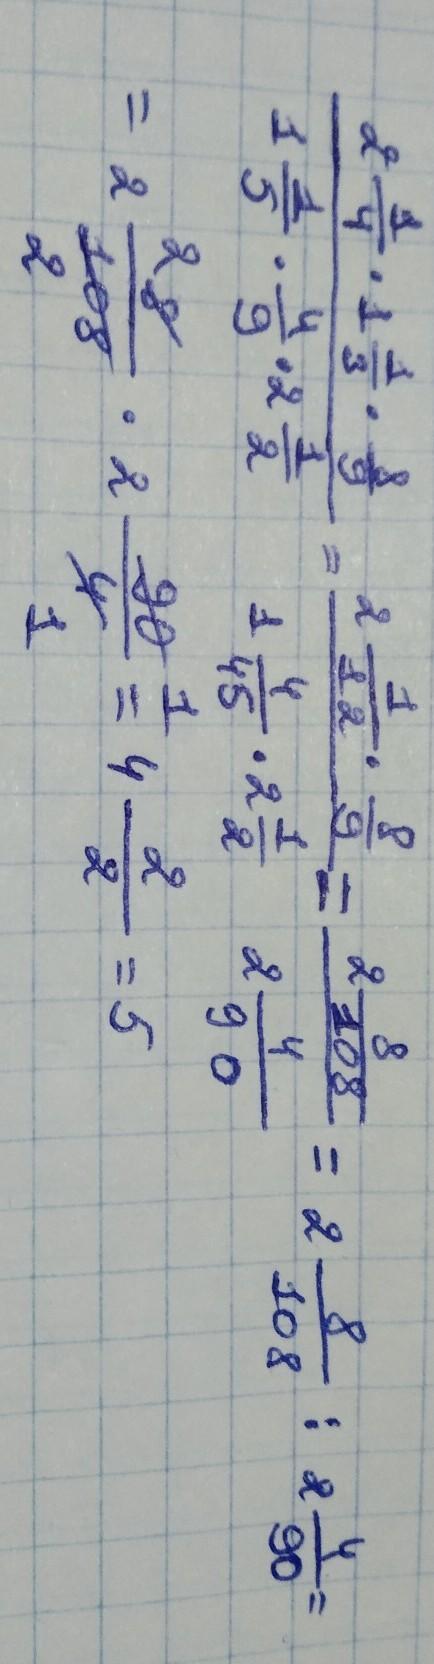 2 1/4 · 1 1/3 · 8/9 / 1 1/5 · 4/9 · 2 1/2 = 2 1/12 · 8/9 / 1 4/45 · 2 1/2 = 2 8/108 / 2 4/90 = 2 8/108 : 2 4/90 =
= 2 2 8/108 2 · 2 90 1/4 1 = 4 2/2 = 5